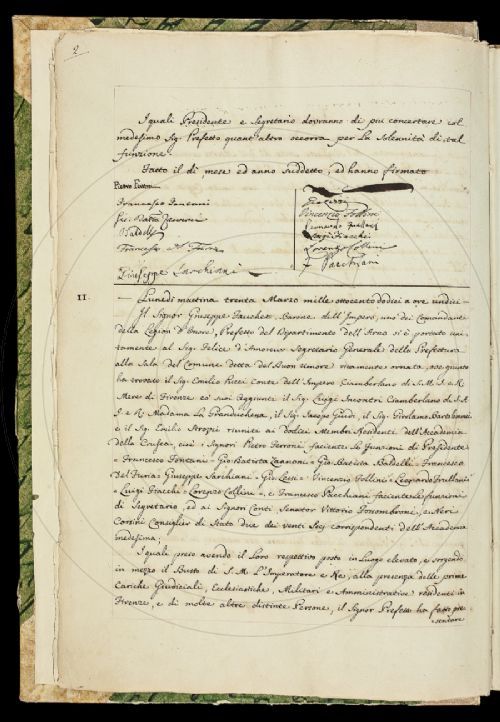 2
I quali Presidente e Segretario dovranno di piu concertare col
medesimo Sig. Prefetto quant'altro occorra per la Solennità di tal
funzione.
Fatto il dì mese ed anno suddetto, ed hanno firmato
Pietro Ferroni
Francesco Fontani
Gio. Batta Zannoni
Baldelli
Francesco del Furia
Giuseppe Sarchiani
Gio. Lessi
Vincenzio Follini
Leonardo Frullani
Luigi Fiacchi
Lorenzo Collini
F. Pacchiani
II.
— Lunedì mattina trenta Marzo mille ottocento dodici a ore undici –
Il Signor Giuseppe Fauchet Barone dell'Impero, uno dei Comandanti
della Legion d'Onore, Prefetto del Dipartimento dell'Arno si è portato uni-
tamente al Sig. Felice d'Amoreux Segretario Generale della Prefettura
alla Sala del Comune detta del Buon Umore riccamente ornata, ove giunto
ha trovato il Sig. Emilio Pucci Conte dell'Impero Ciamberlano di S. M. I. e R.
Mere di Firenze co' suoi Aggiunti il Sig. Luigi Incontri Ciamberlano di S. A.
I. e R. Madama La Granduchessa, il Sig. Jacopo Guidi, il Sig. Girolamo Bartolommei
e il Sig. Emilio Strozzi riuniti ai dodici Membri Residenti dell'Accademia
della Crusca, cioè i Signori Pietro Ferroni facente le funzioni di Presidente
= Francesco Fontani = Gio. Batista Zannoni = Gio. Batista Baldelli = Francesco
Del Furia = Giuseppe Sarchiani = Gio. Lessi = Vincenzio Follini = Leopardo Frullani
= Luigi Fiacchi = Lorenzo Collini =, e Francesco Pacchiani facente le funzioni
di Segretario, ed ai Signori Conti Senator Vittorio Fossombroni, e Neri
Corsini Consiglier di Stato due dei venti Socj corrispondenti dell'Accademia
medesima;
I quali preso avendo il loro respettivo posto in Luogo elevato, e sorgendo
in mezzo il Busto di S. M. L'Imperatore e Re, alla presenza delle prime
Cariche Giudiciali, Ecclesiastiche, Militari e Amministrative residenti in
Firenze, e di molte altre distinte Persone, il Signor Prefetto ha fatto pre-
sendare